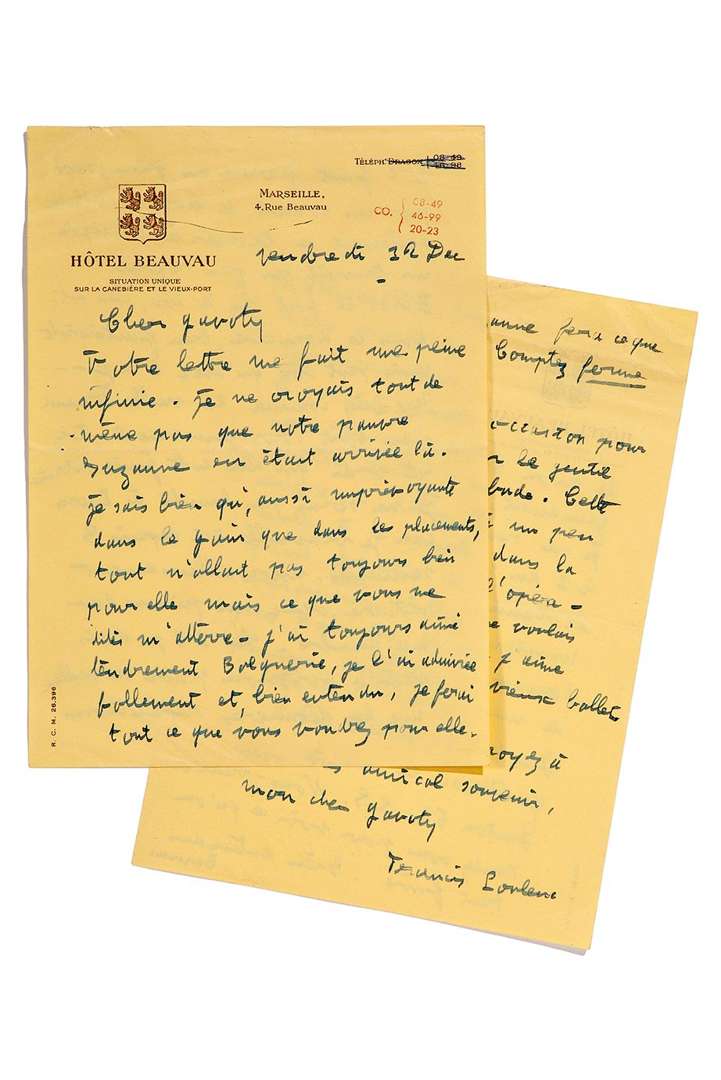 TÉLÉPH. DRAGON 08-49
46-98
MARSEILLE,
4, RUE BEAUVAU
CO. 08-49
46-99
20-23
HÔTEL BEAUVAU
SITUATION UNIQUE
SUR LA CANEBIÈRE ET LE VIEUX-PORT
vendredi Dec
Cher Gavoty
Votre lettre me fait une peine
infinie. Je ne croyais tout de
même pas que notre pauvre
Suzanne en était arrivée là.
Je sais bien qu', aussi imprévoyante
dans le gain que dans les placements,
tout n'allait pas toujours bien
pour elle mais ce que vous me
dites m'atterre - j'ai toujours aimé
tendrement Balguerie, je l'ai admirée
follement et, bien entendu, je ferai
tout ce que vous voudrez pour elle.
R. C. M. 26.396
anne fera ce que
Comptez ferme
occasion pour
le gentil
Cette
un peu
dans la
l'opéra -
voulais
j'aime
vieux ballets
royez à
amical souvenir,
mon cher Gavoty
Francis Poulenc